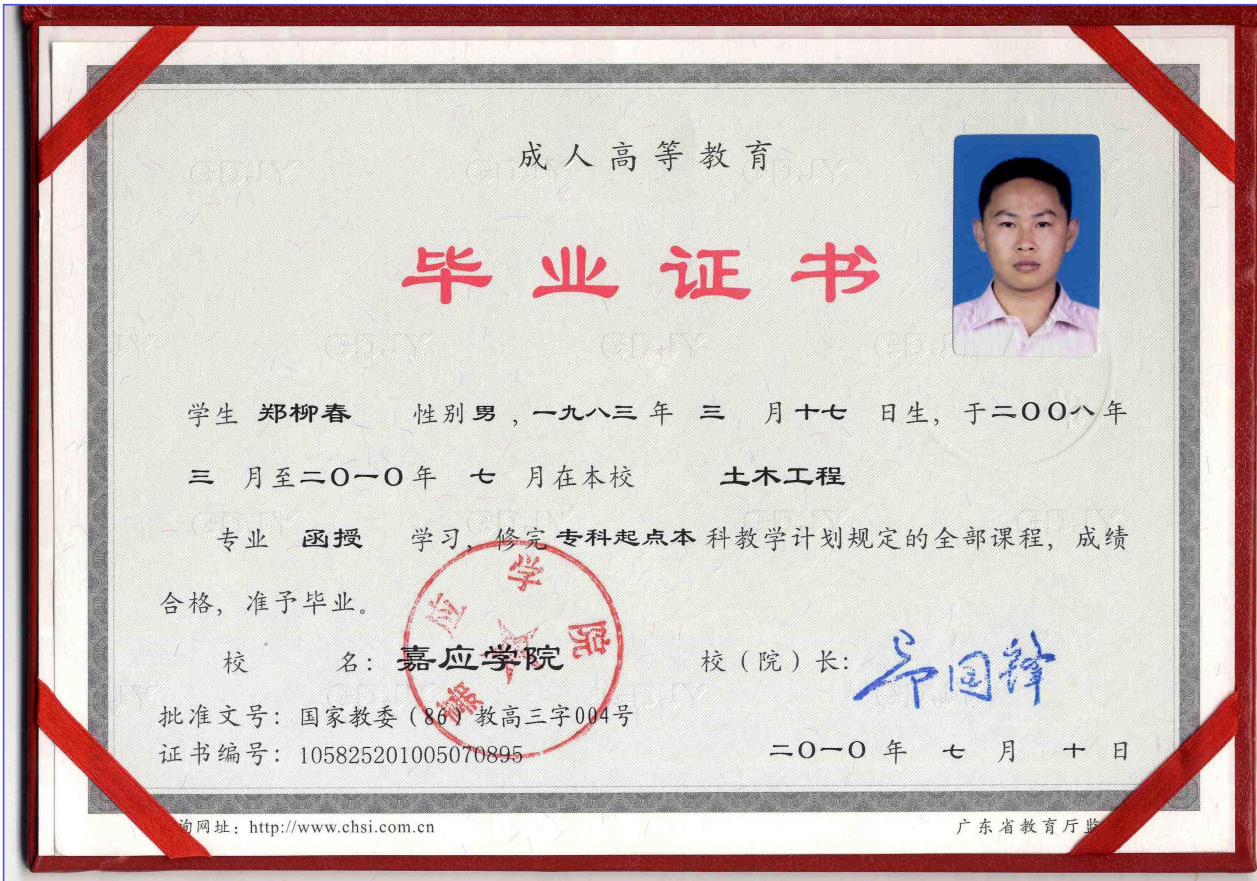 成人高等教育
毕业证书
学生 郑柳春 性别 男 , 一九八三 年 三 月 十七 日生, 于二〇〇八年
三 月至二〇一〇年 七 月在本校 土木工程
专业 函授 学习, 修完 专科起点本 科教学计划规定的全部课程, 成绩
合格, 准予毕业。
校 名: 嘉应学院 校(院)长:
嘉应学院
批准文号: 国家教委(86)教高三字004号
证书编号: 105825201005070895 二〇一〇 年 七 月 十 日
询网址: http://www.chsi.com.cn 广东省教育厅监
GDJY